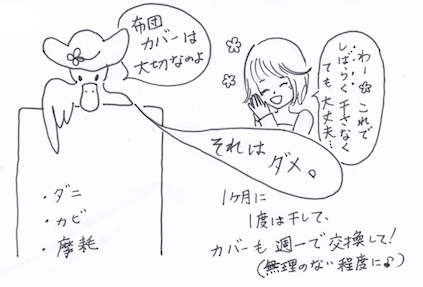 布団
カバーは
大切なのよ
わー これで
しばらく 干さなく
ても 大丈夫…
それは
ダメ。
・ダニ
・カビ
・摩耗
1ヶ月に
1度は干して、
カバーも 週一で交換して!
(無理のない程度に♪)